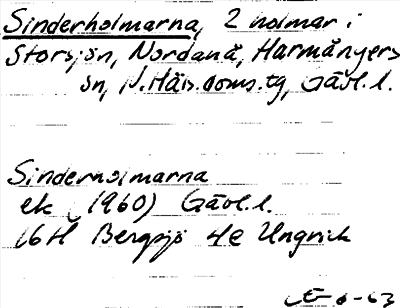 Sinderholmarna, 2 holmar i
Storsjön, Nordanå, Harmångers
sn, N.Häls.doms.tg, Gävl.l.
Sinderholmarna
ek (1960) Gävl.l.
16H Bergsjö 4e Ungvik
6-63